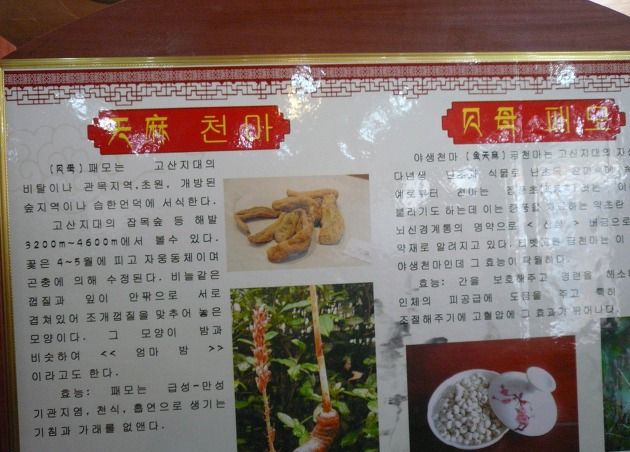 天麻 천마
(贝母)패모는 고산지대의
비탈이나 관목지역,초원, 개방된
숲지역이나 습한언덕에 서식한다.
고산지대의 잡목숲 등 해발
3200m~4600m에서 볼수 있다.
꽃은 4~5월에 피고 자웅동체이며
곤충에 의해 수정된다. 비늘같은
껍질과 잎이 안팎으로 서로
겹쳐있어 조개껍질을 맞추어 놓은
모양이다. 그 모양이 밤과
비슷하여 << 엄마 밤 >>
이라고도 한다.
효능: 패모는 급성-만성
기관지염, 천식, 흡연으로 생기는
기침과 가래를 없앤다.
贝母 패모
야생천마 ( 天麻) 고산지대의
다년생 식물로
예로부터 천마는
불리기도 하는데 이는
뇌신경계통의 명약으로 < > 버금으로
약재로 알려지고 있다.
야생천마인데 그 효능이 탁월하다.
효능: 간을 보호해주고 경련을
인체의 피공급에 도움을 주고 특히
조절해주기에 고혈압에 그 효과가 뛰어나다.